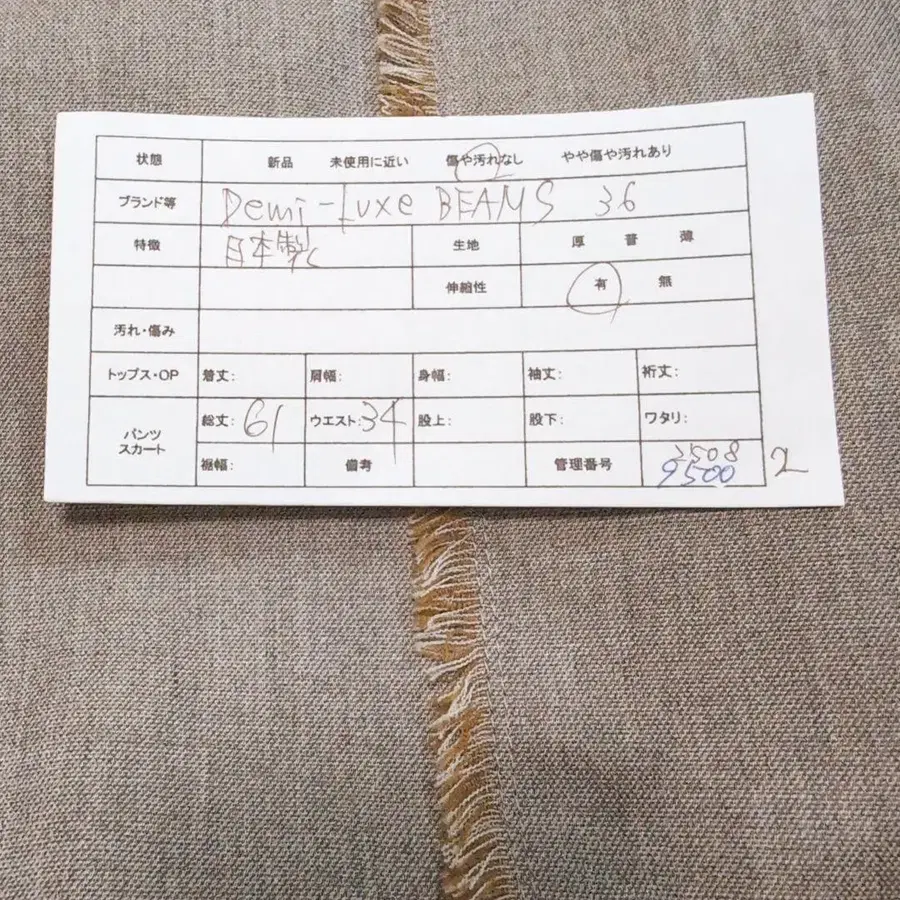 状態 新品 未使用に近い 傷や汚れなし やや傷や汚れあり
ブランド等 Demi-Luxe BEAMS 36
特徴 日本製 生地 厚 普 薄
伸縮性 有 無
汚れ・傷み
トップス・OP 着丈: 肩幅: 身幅: 袖丈: 裄丈:
パンツ スカート 総丈: 61 ウエスト: 34 股上: 股下: ワタリ:
裾幅: 備考 管理番号 2508
9500 2